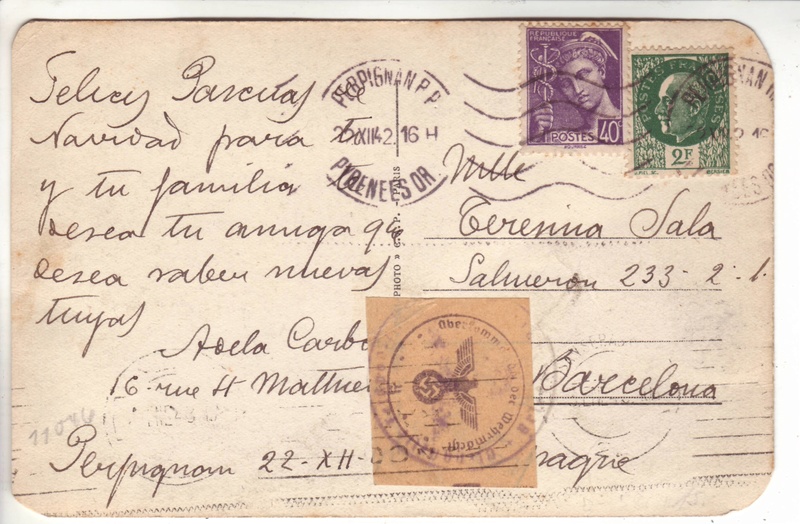 Felices Pascuas
Navidad para ti
y tu familia
desea tu amiga que
desea saber nuevas
tuyas
Adela Carbo
16 rue St Mathieu
Perpignan 22-XII-
11046
PERPIGNAN P.P.
16 H
PYRENEES OR.
RÉPUBLIQUE
FRANÇAISE
POSTES
40c
POSTES FRANÇAISES
2F
PHOTO » C.A.P. - PARIS
Mlle
Teresina Sala
Salmeron 233-2-1
Barcelona
Oberkommando der Wehrmacht